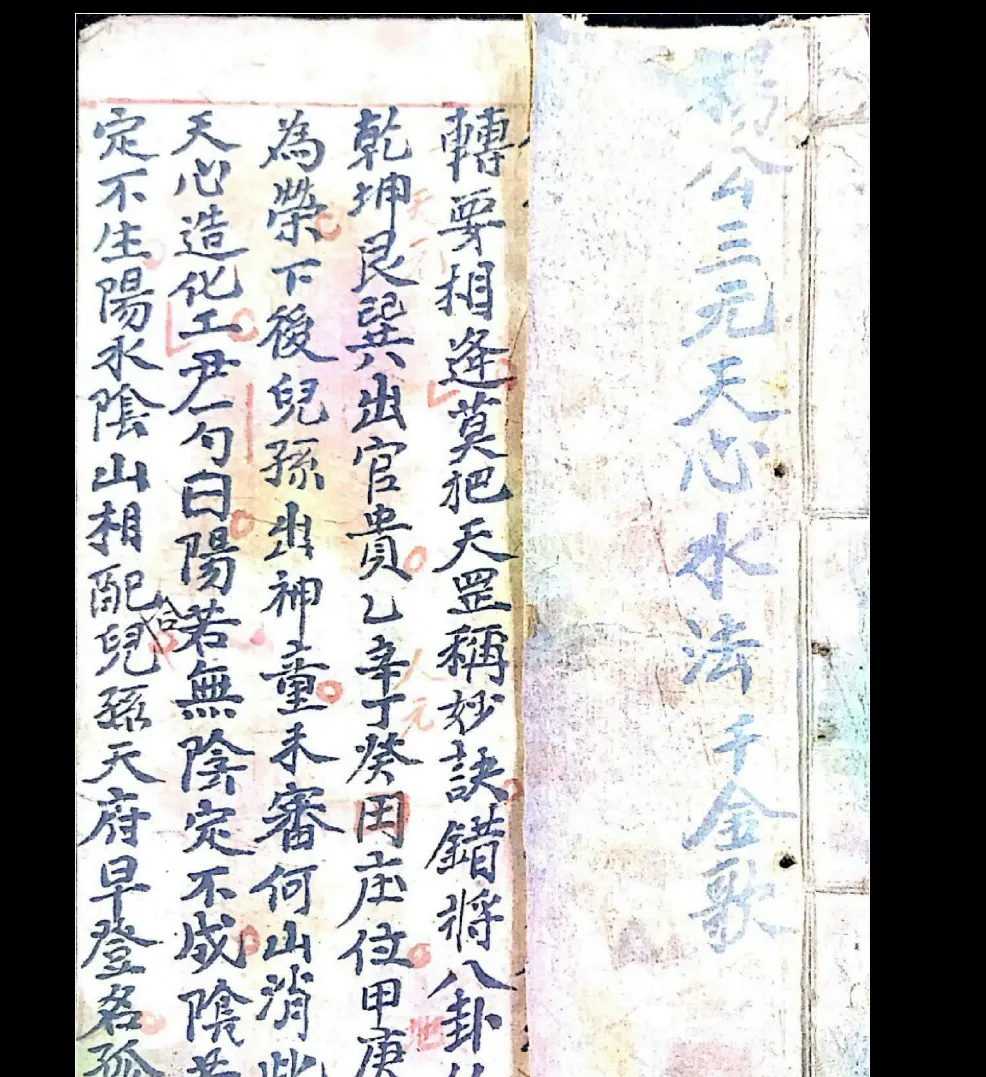 楊公三元天心水法千金歌
轉要相逢莫把天罡稱妙訣錯將八卦
乾坤艮巽出官貴乙辛丁癸田庄位甲庚
天元
人元
為榮下後兒孫出神童未審何山消此
天心造化工尹勻曰陽若無陰定不成陰若
定不生陽水陰山相配兒孫天府早登名孤
合